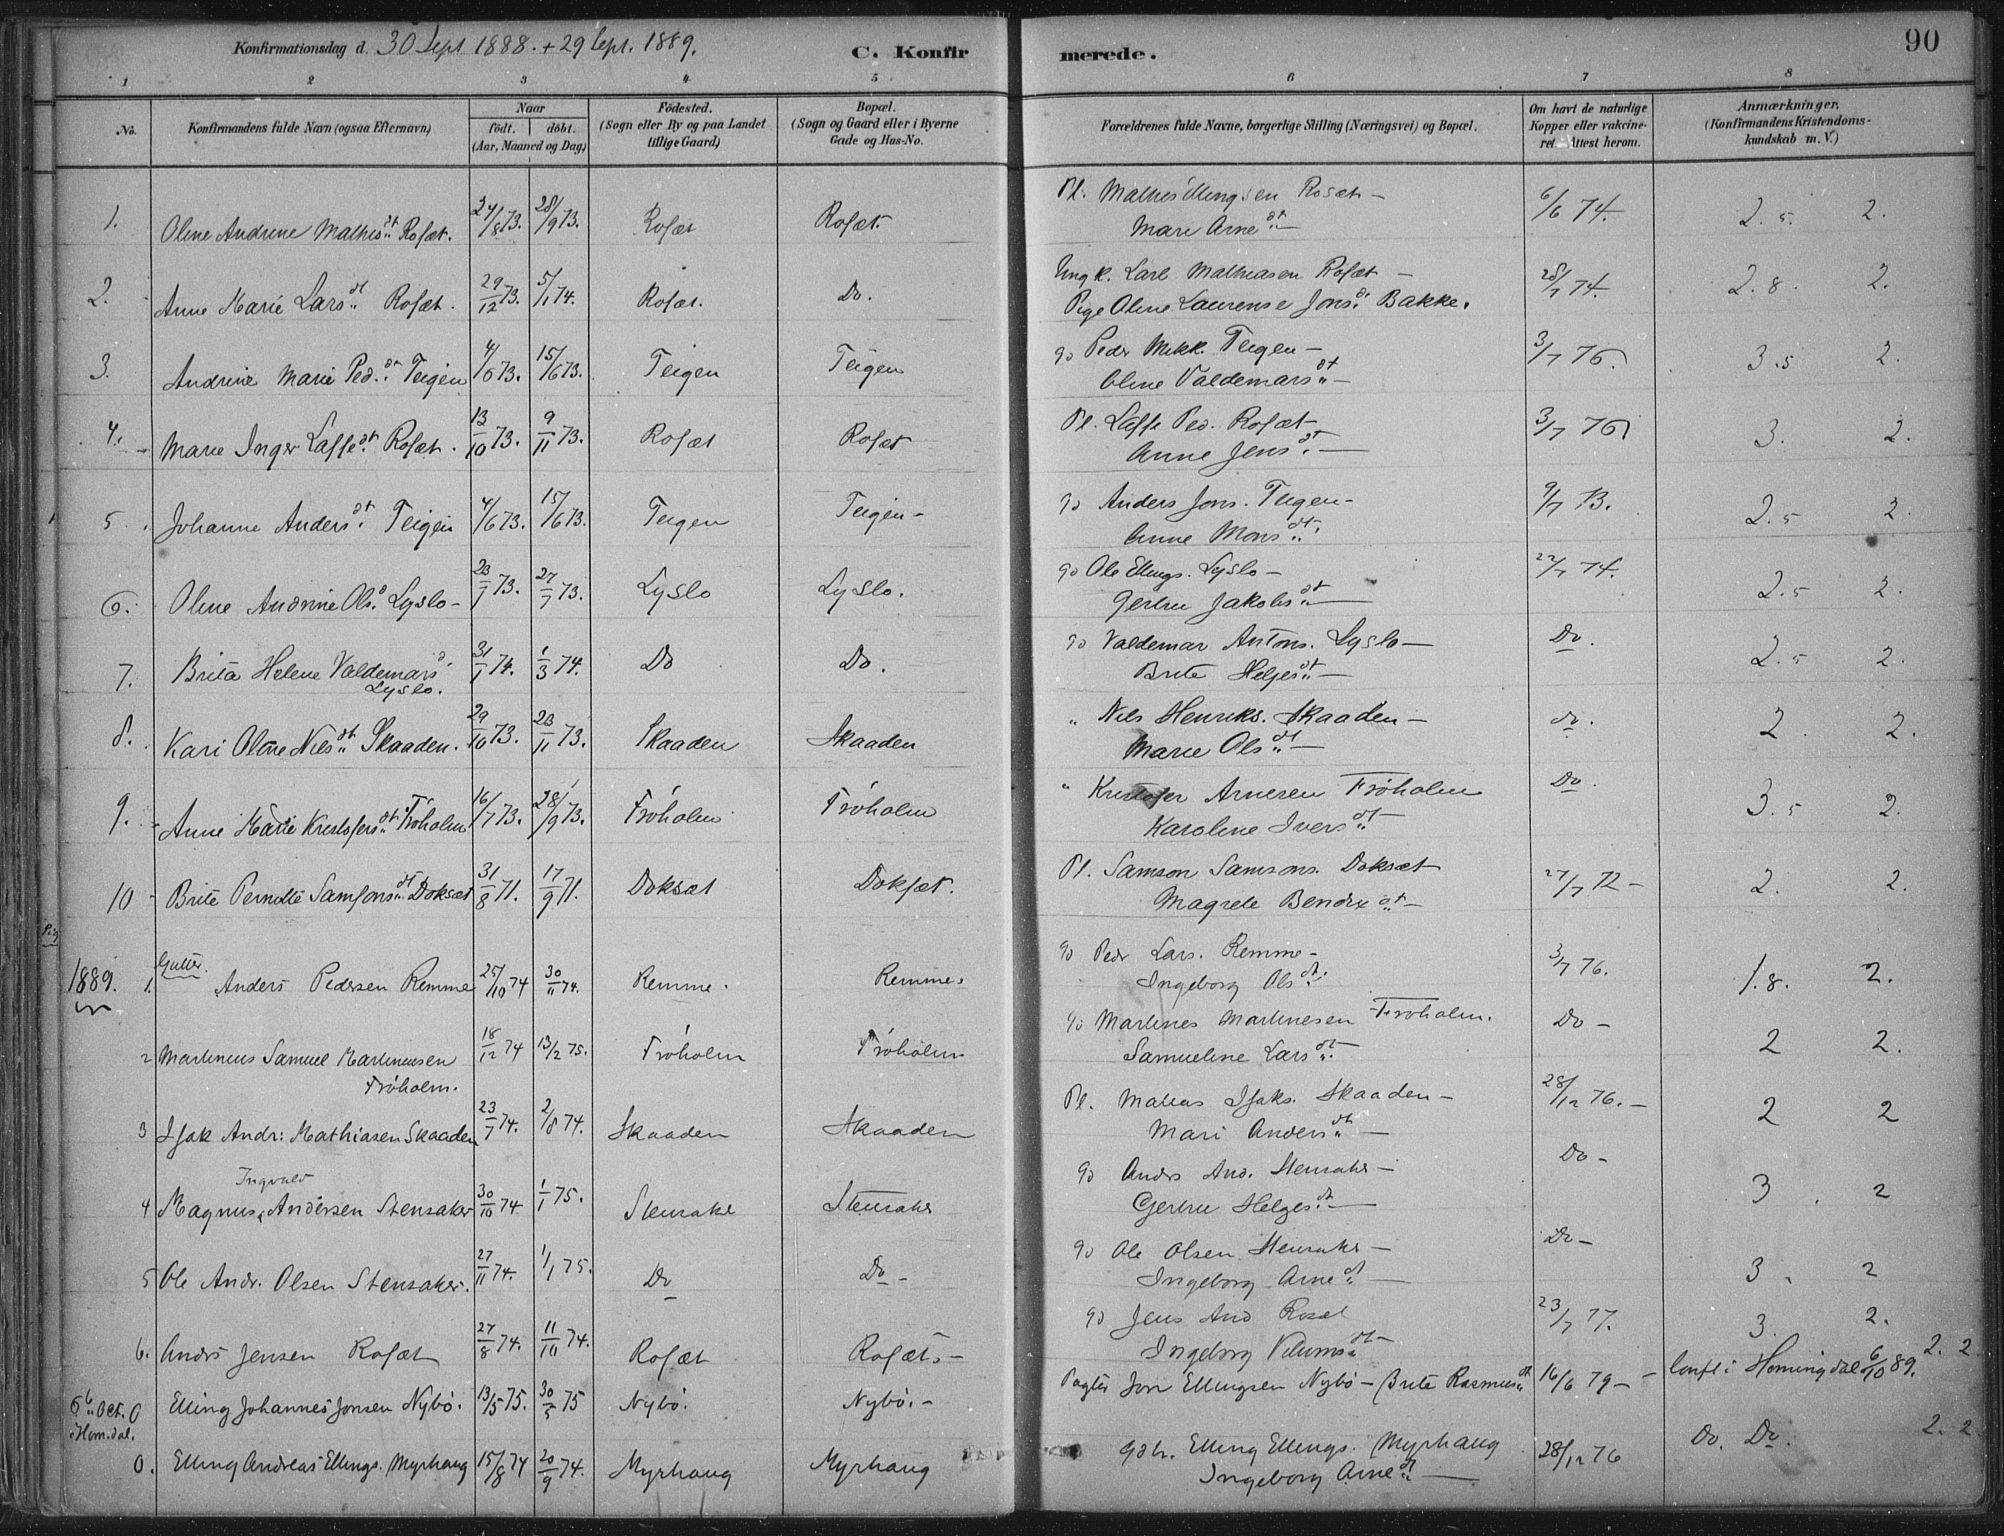 Konfirmationsdag d. 30 Sept 1888. + 29 Sept. 1889.
C. Konfirmerede.
90
1 2 3 4 5 6 7 8
No.
Konfirmandens fulde Navn (ogsaa Efternavn)
Naar
født. døbt.
(Aar, Maaned og Dag)
Fødested.
(Sogn eller By og paa Landet
tillige Gaard)
Bopæl.
(Sogn og Gaard eller i Byerne
Gade og Hus-No.
Forældrenes fulde Navne, borgerlige Stilling (Næringsvei) og Bopæl.
Om havt de naturlige
Kopper eller vakcine-
ret. Attest herom.
Anmærkninger.
(Konfirmandens Kristendoms-
kundskab m. V.)
1. Oline Andrine Mathisdt Rosæt. 24/8 73. 28/9 73. Rosæt Rosæt. Pl. Mathis Ellingsen Rosæt - 6/6 74. 2.5 2.
Mari Arnedt -
2. Anne Marie Larsdt Rosæt. 29/12 73. 5/1 74. Rosæt. Do. Ungk. Lars Mathiasen Rosæt - 28/7 74. 2.8. 2.
Pige Oline Laurense Jonsdt Bakke.
3. Andrine Marie Ped.dt Teigen 4/6 73. 15/6 73. Teigen Teigen Peder Mikk. Teigen - 3/7 76. 3.5 2.
Oline Valdemarsdt -
4. Marie Inger Lassedt Rosæt. 13/10 73. 9/11 73. Rosæt Rosæt Pl. Lasse Ped. Rosæt - 3/7 76 3. 2.
Anne Jensdt -
5. Johanne Andersdt Teigen 4/6 73. 15/6 73. Teigen Teigen - Anders Jons. Teigen - 2.5 2.
Anne Monsdt
6. Oline Andrine Ols.d Lyslo - 27/7 73. Lyslo Lyslo. Ole Ellings. Lyslo - 22/7 74. 2.5 2.
Gertru Jakobsdt -
7. Brita Helene Valdemarsd 31/1 74. 1/3 74. Do Do. Valdemar Antons. Lyslo - Do. 2.5 2.
Lyslo.
Brite Helgesdt -
8. Kari Oline Nilsdt Skaaden. 29/10 73. 23/11 73. Skaaden Skaaden " Nils Henriks. Skaaden - do. 2. 2.
Marie Olsdt -
9. Anne Marie Kristofersdt Frøholm 16/7 73. 28/9 73. Frøholm Frøholm " Kristofer Arnesen Frøholm Do. 3.5 2.
Karoline Iversdt -
10 Brite Pernille Samsonsdt Doksæt 31/8 71. 17/9 71. Doksæt Doksæt. Pl. Samson Samsons. Doksæt 27/7 72 - 2. 2.
Magrete Bendixdt -
1889. Gutter.
1. Anders Pedersen Remme 25/10 74 30/11 74. Remme. Remme. Peder Lars. Remme - 3/7 76. 1.8. 2.
Ingeborg Olsdt.
2 Martinus Samuel Martinusen 18/12 74 13/2 75. Frøholm Frøholm Martines Martinesen Frøholm. Do - 2 2.
Frøholm.
Samueline Larsdt -
3 Isak Andr: Mathiasen Skaaden 23/7 74. 2/8 74. Skaaden Skaaden Pl. Matias Isaks. Skaaden - 28/12 76. - 2 2
Mari Andersdt -
Ingvald
4 Magnus Andersen Stensaker 30/10 74 1/1 75. Stensaker Stensaker Anders And. Stensaker - Do - 3. 2
Gertru Helgesdt -
5 Ole Andr. Olsen Stensaker. 27/11 74. 1/1 75. Do Do - Ole Olsen Stensaker - Do - 3. 2
Ingeborg Arnedt -
6. Anders Jensen Rosæt 27/8 74. 11/10 74. Rosæt Rosæt. - Jens And Rosæt 23/7 77. 3. 2.
Ingeborg Vilumsdt -
6te Oct. 0 Elling Johannes Jonsen Nybø. 13/5 75. 30/5 75 Nybø. Nybø. - Jon Ellingsen Nybø - Brite Rasmusdt 16/6 79 - Conf. i Horningdal 6/10 89. 2. 2
i Horn.dal.
0. Elling Andreas Ellings. Myrhaug 15/8 74 20/9 74. Myrhaug Myrhaug Gdbr. Elling Ellings. Myrhaug 28/12 76 Do. Do. 2. 2
Ingeborg Arnedt -